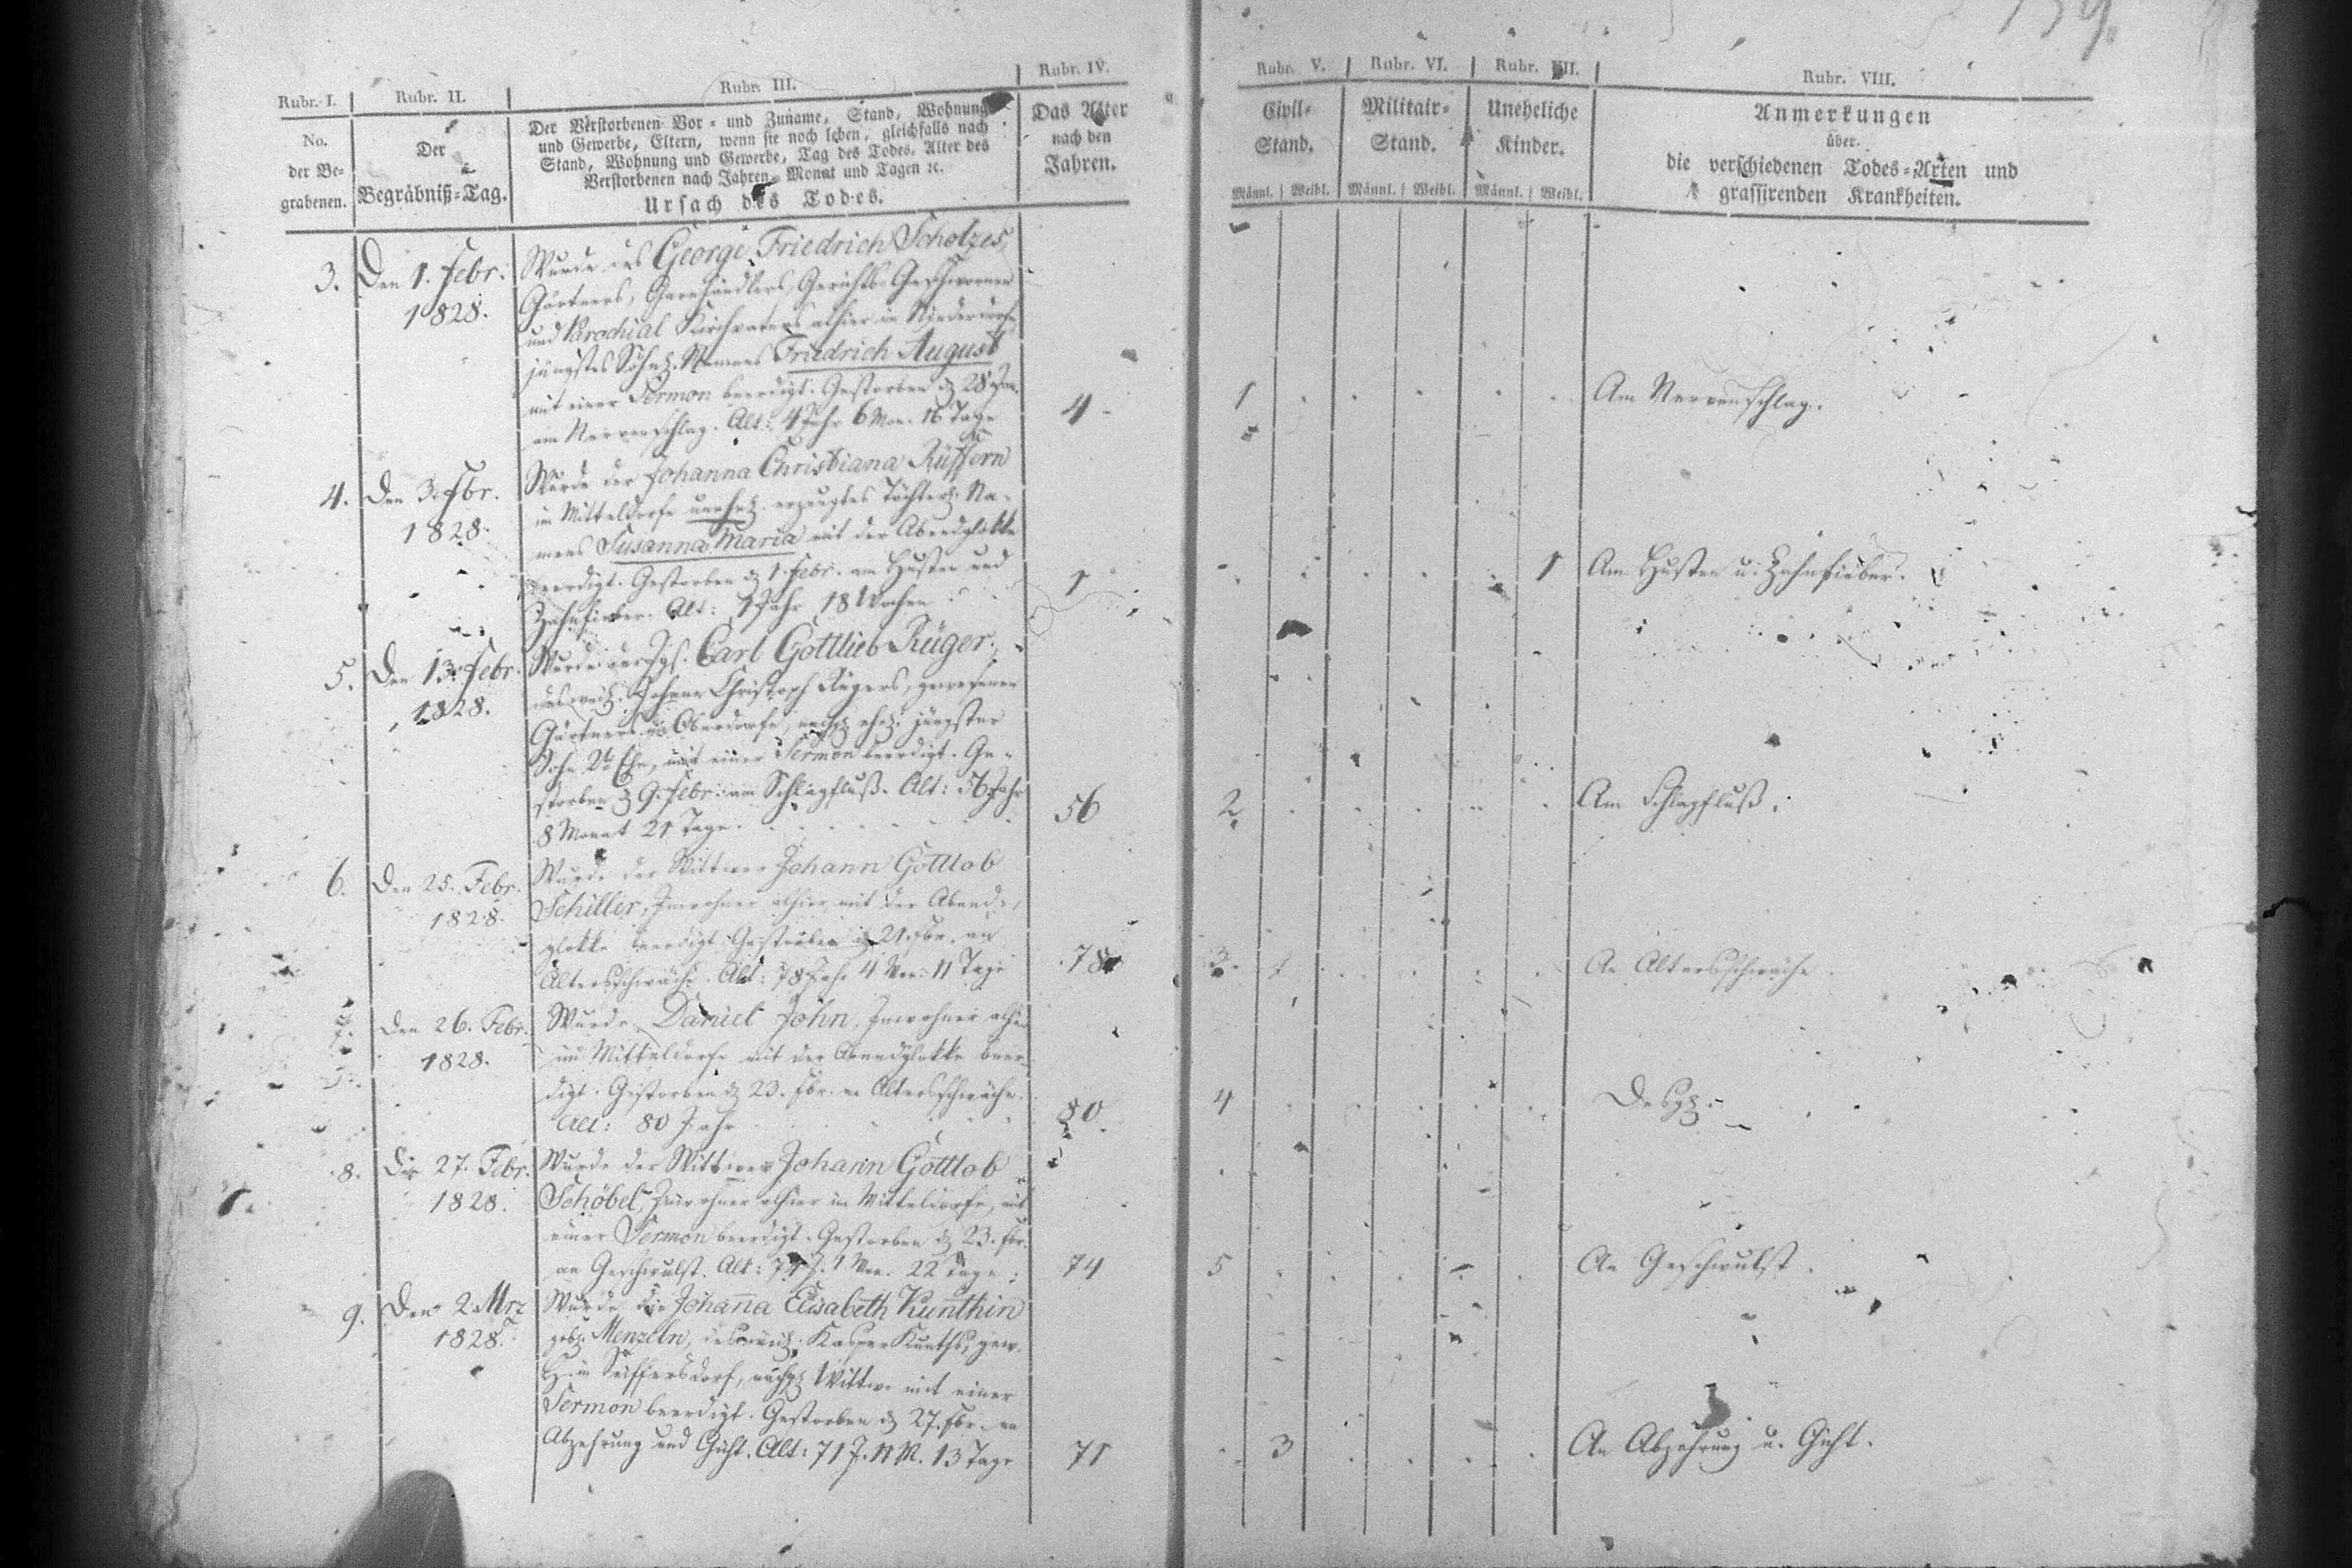 159.
Rubr. I.
No.
der Be-
grabenen.
Rubr. II.
Der
Begräbniß-Tag.
Rubr. III.
Der Verstorbenen Vor- und Zuname, Stand, Wohnung
und Gewerbe, Eltern, wenn sie noch leben, gleichfalls nach
Stand, Wohnung und Gewerbe, Tag des Todes, Alter des
Verstorbenen nach Jahren, Monat und Tagen ꝛc.
Ursach des Todes.
Rubr. IV.
Das Alter
nach den
Jahren.
Rubr. V.
Civil-
Stand.
Männl. Weibl.
Rubr. VI.
Militair-
Stand.
Männl. Weibl.
Rubr. VII.
Uneheliche
Kinder.
Männl. Weibl.
Rubr. VIII.
Anmerkungen
über
die verschiedenen Todes-Arten und
grassirenden Krankheiten.
3. Den 1. Febr.
1828.
Wurde des George Friedrich Scholzes,
Gärtners, Garnhändlers, Gerichts-Geschwornen
und Parochial Kirchvaters alhier in Niederdorfe
jüngstes Söhnl. Namens Friedrich August
mit einer Sermon beerdigt. Gestorben d. 28. Jan.
am Nervenschlag. Alt: 4 Jahr 6 Mon. 16 Tage
4
1
Am Nervenschlag.
4. Den 3. Fbr.
1828.
Wurde der Johanna Christiana Rüffern
im Mitteldorfe unehel. erzeugtes Töchterl. Na-
mens Susanna Maria mit der Abendglokke
beerdigt. Gestorben d. 1. Febr. am Husten und
Zahnfieber. Alt: 1 Jahr 18 Wochen
1
1
Am Husten u. Zahnfieber.
5. Den 13. Febr.
1828.
Wurde der Jgs. Carl Gottlieb Rüger,
des weil. Johann Christoph Rügers, gewesenen
Gärtners in Oberdorfe, nachgl. ehel. jüngster
Sohn 2r Ehe, mit einer Sermon beerdigt. Ge-
storben d. 9. Febr. am Schlagfluß. Alt: 56 Jahr
8 Monat 21 Tage.
56
2
Am Schlagfluß.
6. Den 25. Febr.
1828.
Wurde der Wittwer Johann Gottlob
Schiller, Inwohner alhier mit der Abend-
glokke beerdigt. Gestorben d. 21. Fbr. an
Altersschwäche. Alt: 78 Jahr 4 Mon. 11 Tage
78
3
An Altersschwäche
7. Den 26. Febr.
1828.
Wurde Daniel John, Inwohner alhier
im Mitteldorfe mit der Abendglokke beer-
digt. Gestorben d. 23. Fbr. an Altersschwäche.
Alt: 80 Jahr
80.
4
Desgl.
8. Den 27. Febr.
1828.
Wurde der Wittwer Johann Gottlob
Schöbel, Inwohner alhier im Mitteldorfe, mit
einer Sermon beerdigt. Gestorben d. 23. Fbr.
an Geschwulst. Alt: 74 J. 1 Mon. 22 Tage
74
5
An Geschwulst.
9. Den 2. Mrz
1828.
Wurde die Johanna Elisabeth Kunthin
gebl. Menzeln, des weil. Kasper Kunths, gew.
H. in Seiffersdorf, nachgl. Wittwe mit einer
Sermon beerdigt. Gestorben d. 27. Fbr. an
Abzehrung und Gicht. Alt: 71 J. 11 M. 13 Tage
71
3
An Abzehrung u. Gicht.